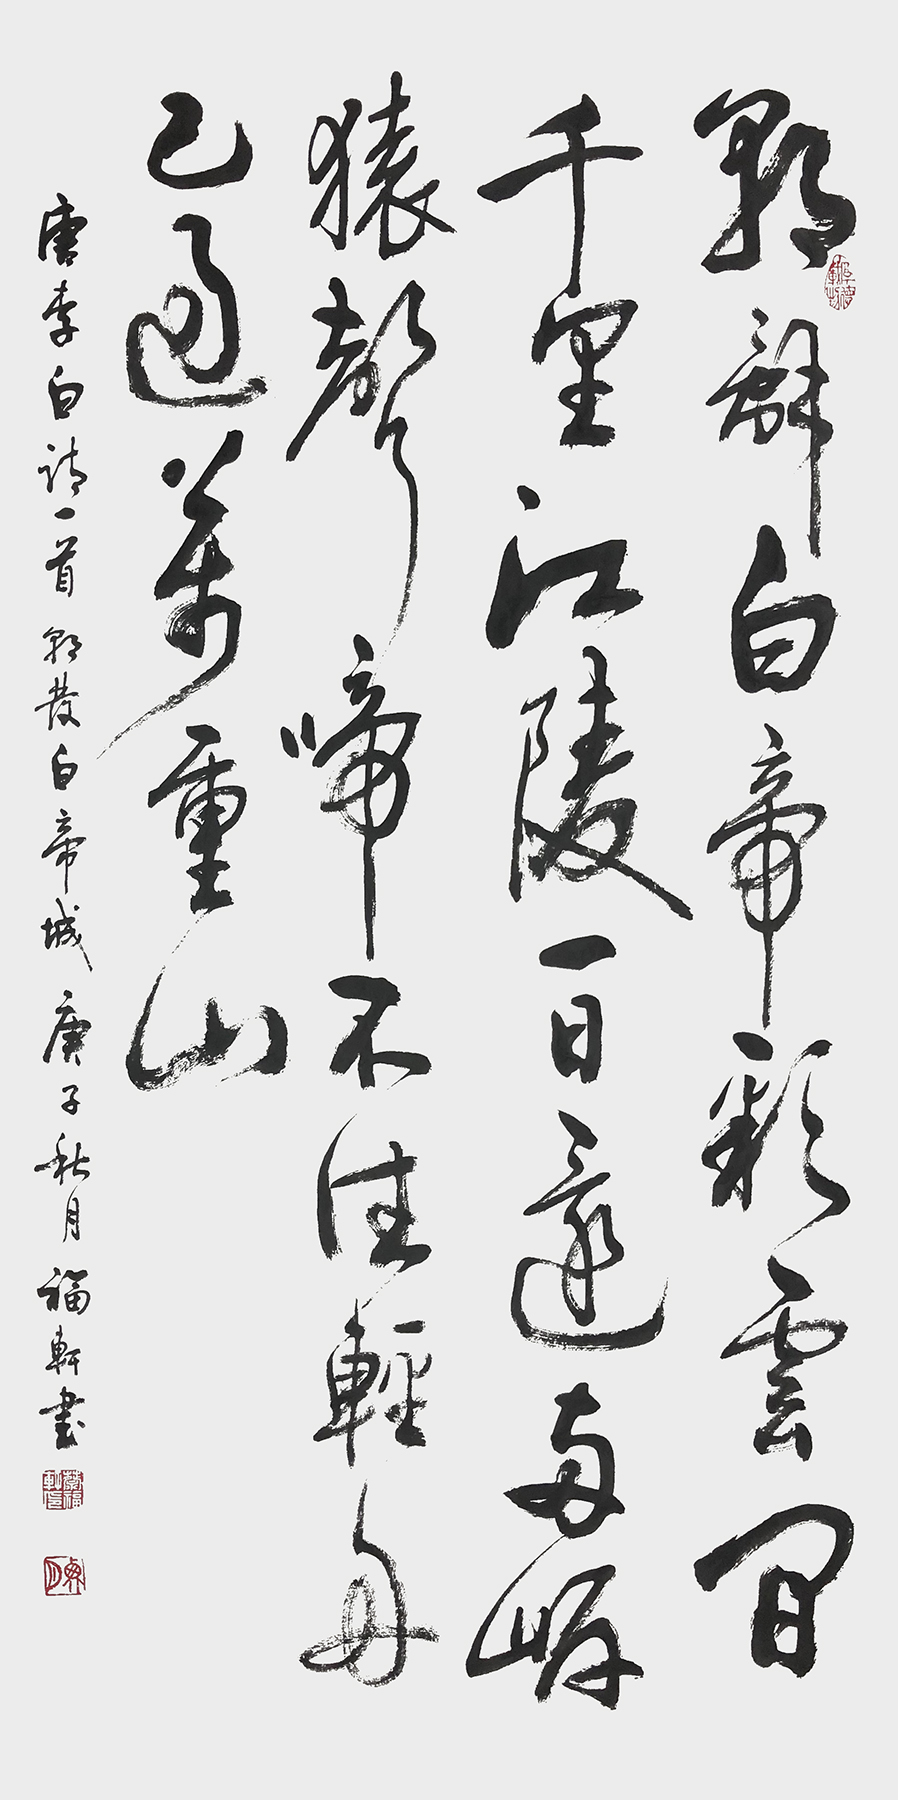 朝辭白帝彩雲間
千里江陵一日還兩岸
猿聲啼不住輕舟
已過萬重山
唐李白詩一首朝發白帝城庚子秋月福軒書